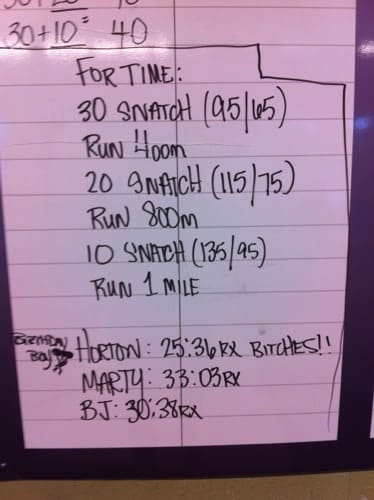 30+10= 40
FOR TIME:
30 SNATCH (95/65)
RUN 400m
20 SNATCH (115/75)
RUN 800m
10 SNATCH (135/95)
RUN 1 MILE
BIRTHDAY
BOY HORTON: 25:36RX BITCHES!!
MARTY: 33:03RX
BJ: 30:38RX